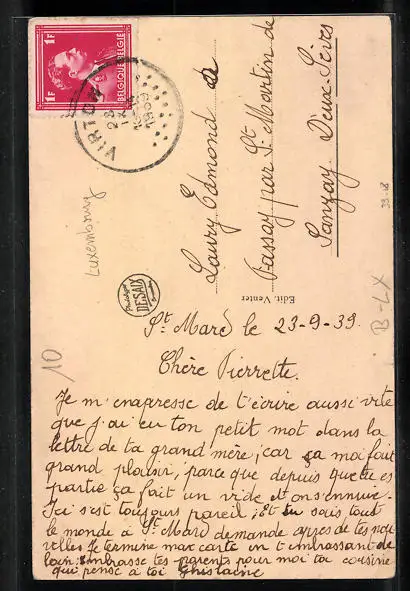 1F
1F
BELGIQUE-BELGIË
VIRTON
23
IX
1939
Laury Edmond
Passay par St Martin de
Sanzay Deux-Sèvres
Luxembourg
Phototypie
DESAIX
Bruxelles
Edit. Venter
33-18
B-LX
10
St. Mard le 23-9-39
Chère Pierrette.
Je m'enapresse de t'écrire aussi vite
que j'ai eu ton petit mot dans la
lettre de ta grand mère; car ça ma fait
grand plaisir, parce que depuis que tu es
partie ça fait un vide et on s'ennuie.
Ici s'est toujours pareil; Et tu sais tout
le monde à St Mard demande après de tes nou
velles Je termine ma carte en t'embrassant de
loin; Embrasse tes parents pour moi ta cousine
qui pense à toi Ghislaine